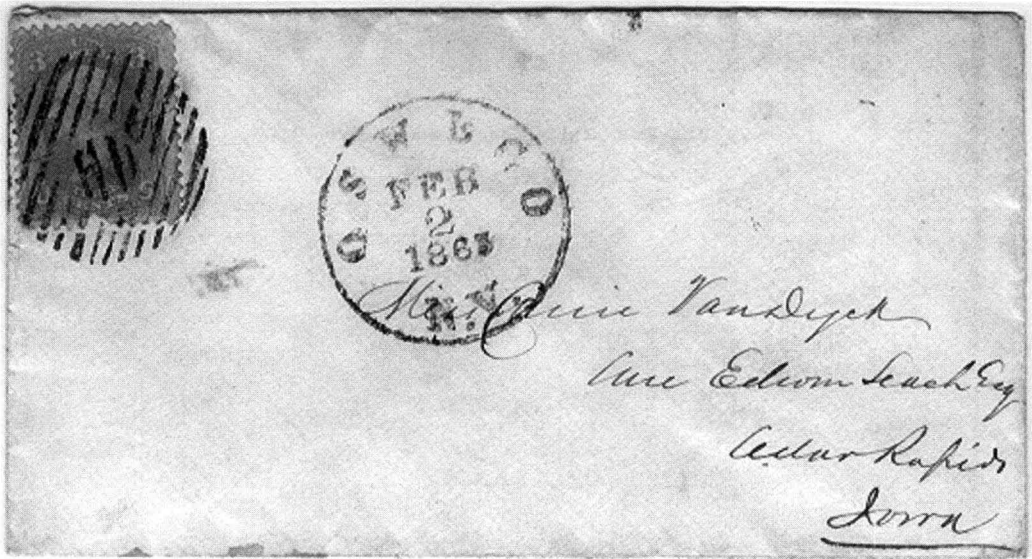 OSWEGO
FEB
2
1863
N.Y.
Miss Annie VanDyck
Care Edwin Leach Esq
Cedar Rapids
Iowa